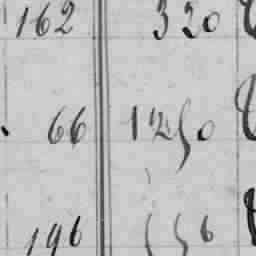 162 320
66 1250
196 156